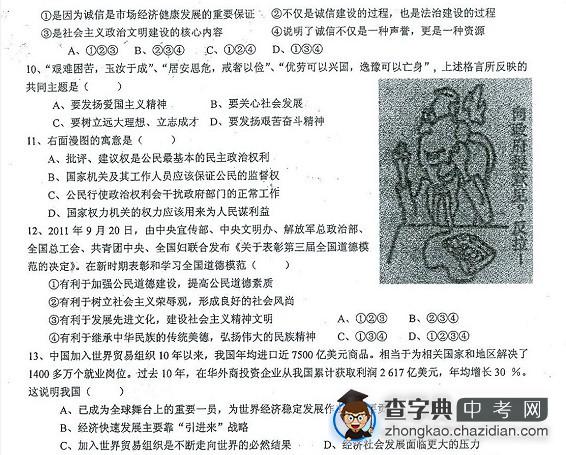 ①是因为诚信是市场经济健康发展的重要保证　②不仅是诚信建设的过程，也是法治建设的过程
③是社会主义政治文明建设的核心内容　④说明了诚信不仅是一种声誉，更是一种资源
A、①②③　B、②③④　C、①②④　D、①③④
10、“艰难困苦，玉汝于成”、“居安思危，戒奢以俭”、“优劳可以兴国，逸豫可以亡身”，上述格言所反映的
共同主题是（　）
A、要发扬爱国主义精神　B、要关心社会发展
C、要树立远大理想、立志成才　D、要发扬艰苦奋斗精神
11、右面漫图的寓意是（　）
A、批评、建议权是公民最基本的民主政治权利
B、国家机关及其工作人员应该保证公民的监督权
C、公民行使政治权利会干扰政府部门的正常工作
D、国家权力机关的权力应该用来为人民谋利益
向政府提意见？反啦！
12、2011 年 9 月 20 日，由中央宣传部、中央文明办、解放军总政治部、
全国总工会、共青团中央、全国妇联合发布《关于表彰第三届全国道德模
范的决定》。在新时期表彰和学习全国道德模范（　）
①有利于加强公民道德建设，提高公民道德素质
②有利于树立社会主义荣辱观，形成良好的社会风尚
③有利于发展先进文化，建设社会主义精神文明　A、①②③　B、②③④
④有利于继承中华民族的传统美德，弘扬伟大的民族精神　C、①③④　D、①②③④
13、中国加入世界贸易组织 10 年以来，我国年均进口近 7500 亿美元商品。相当于为相关国家和地区解决了
1400 多万个就业岗位。过去 10 年，在华外商投资企业从我国累计获取利润 2 617 亿美元，年均增长 30 %。
这说明我国（　）
A、已成为全球舞台上的重要一员，为世界经济稳定发展作
B、经济快速发展主要靠“引进来”战略
C、加入世界贸易组织是不断走向世界的必然结果　D、经济社会发展面临更大的压力
查字典中考网
zhongkao.chazidian.com